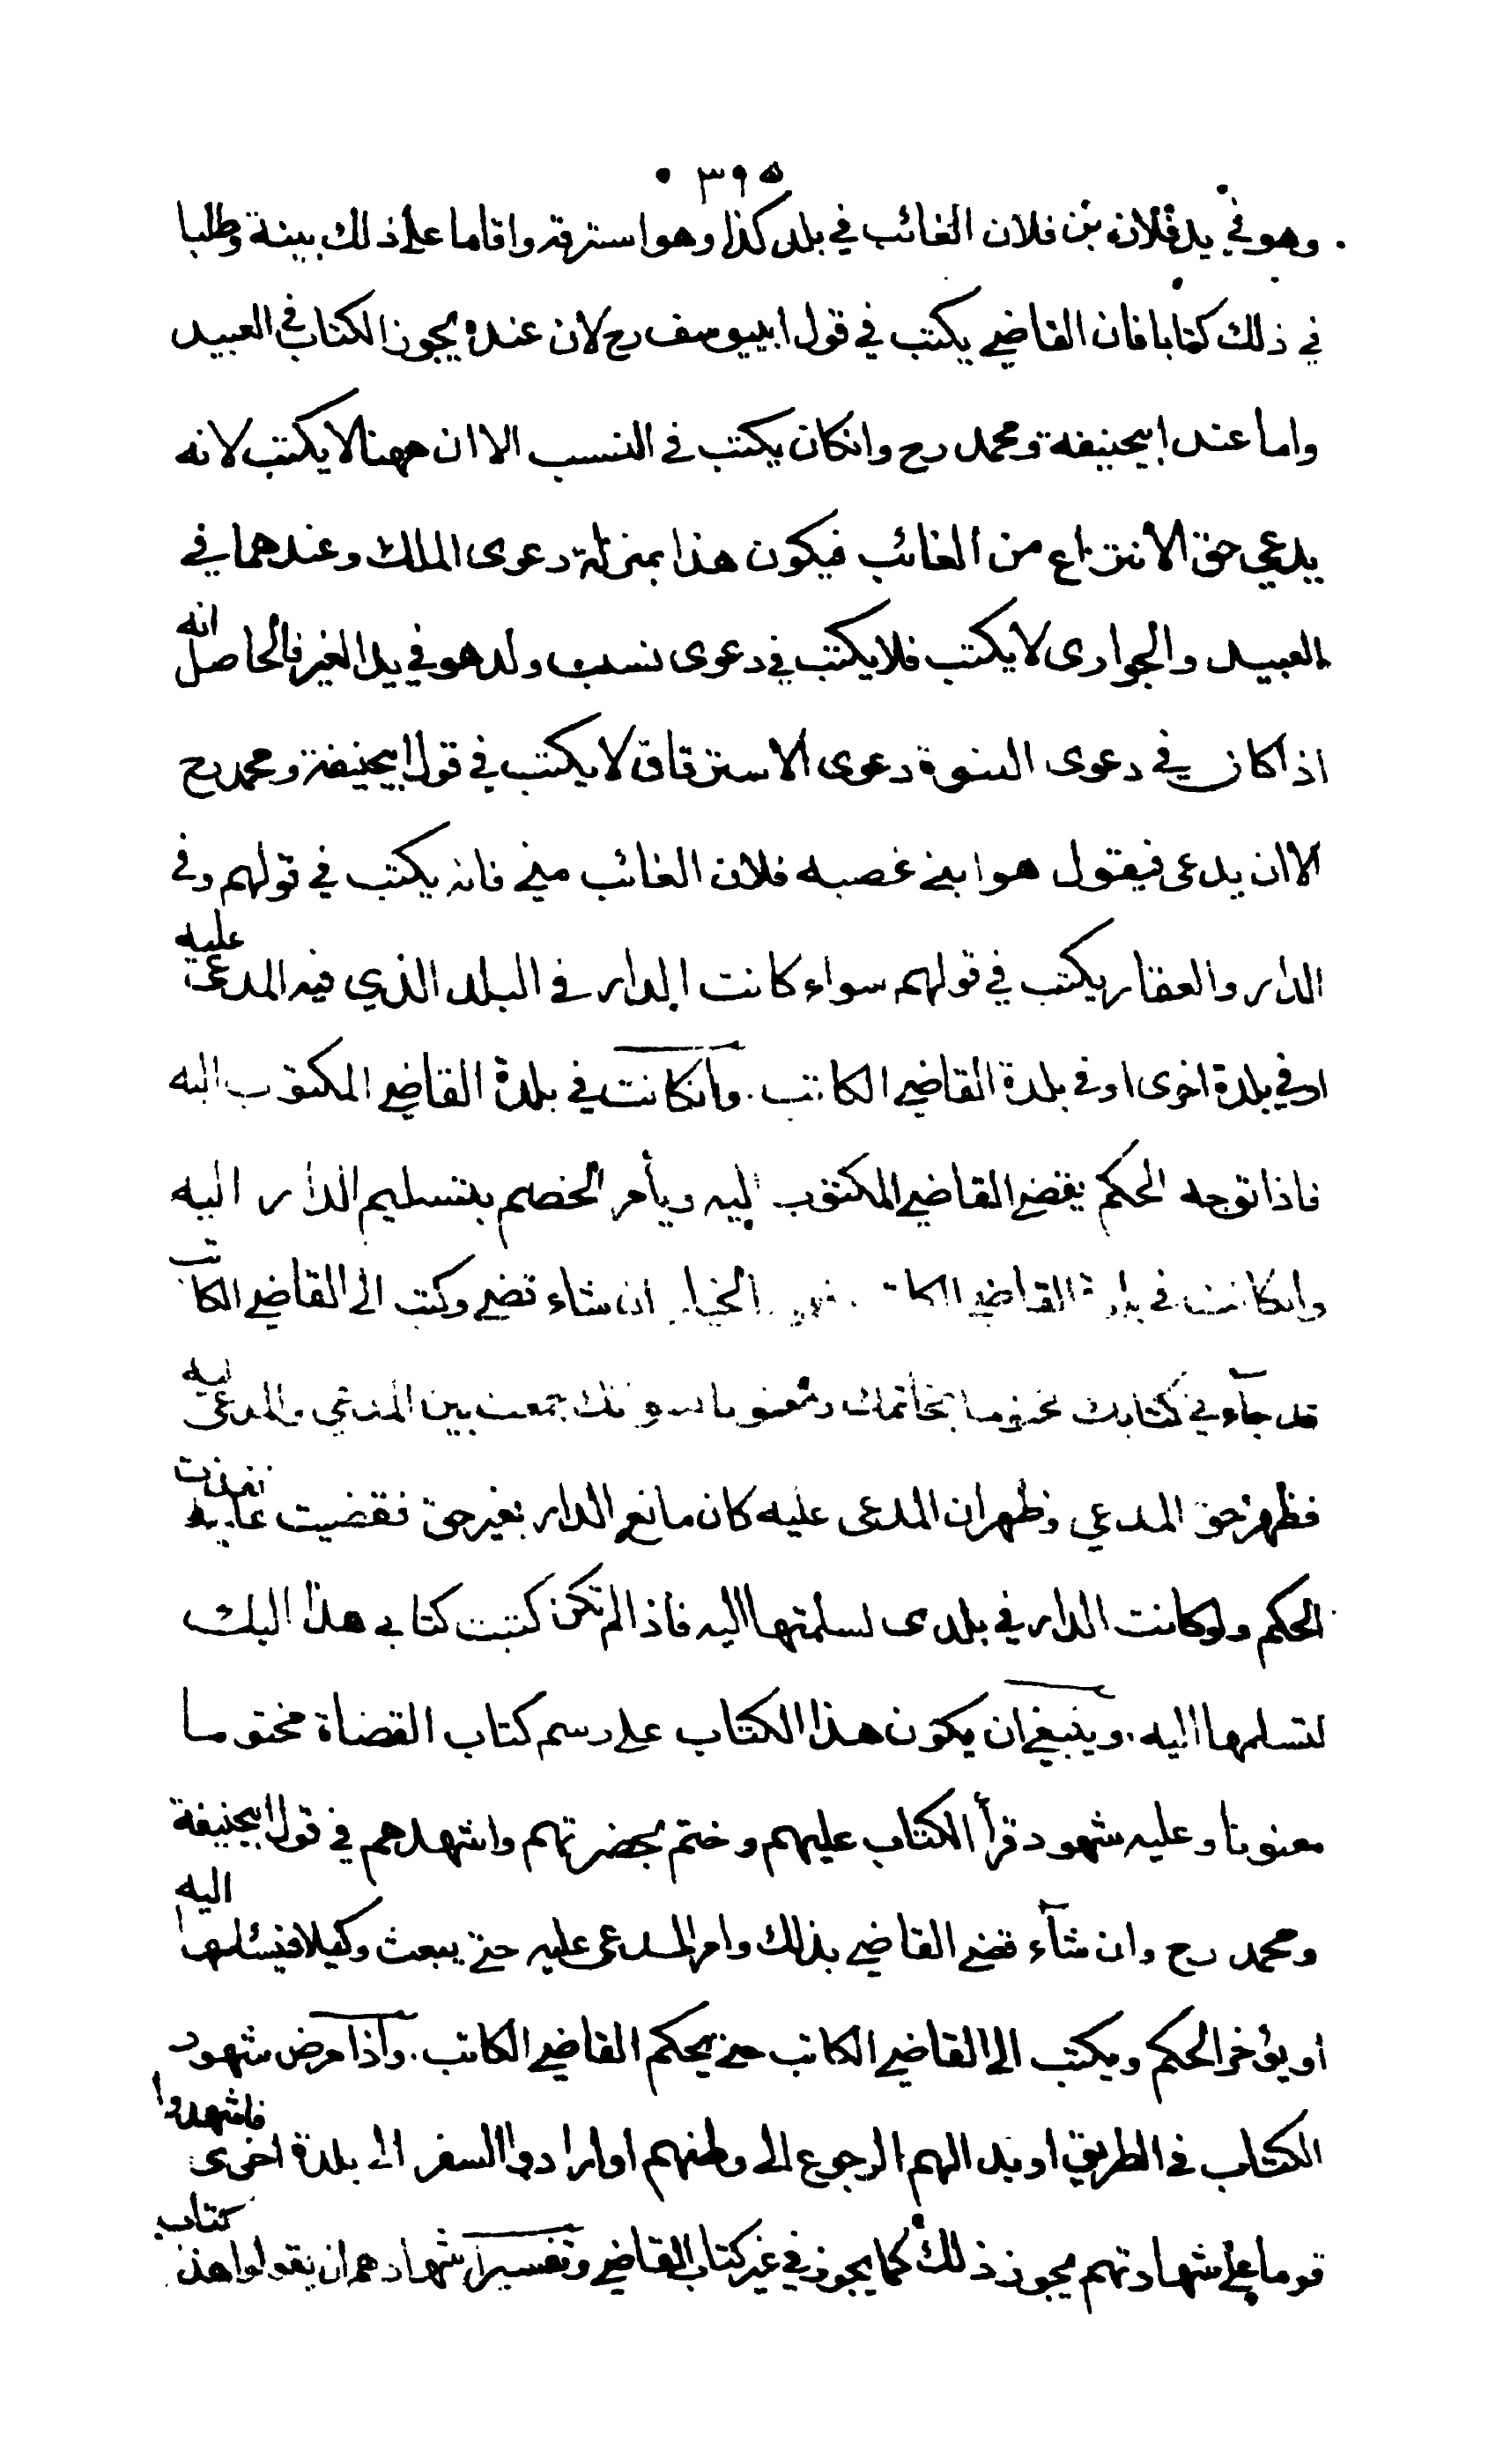 ٣٩٥
وهو في يد فلان بن فلان الغائب في بلد كذا وهو استرقه واقاما على ذلك بينة وطلبا
في ذلك كتابا فان القاضي يكتب في قول ابييوسف رح لان عنده يجوز الكتاب في العبيد
واما عند ابيحنيفة ومحمد رح وانكان يكتب في النسب الا ان ههنا لا يكتب لانه
يدعي حق الانتزاع من الغائب فيكون هذا بمنزلة دعوى الملك وعندهما في
العبيد والجوارى لا يكتب فلا يكتب في دعوى نسب ولد هو في يد الغير فالحاصل انه
اذا كان في دعوى البنوة دعوى الاسترقاق لا يكتب في قول ابيحنيفة ومحمد رح
الا ان يدعى فيقول هو ابني غصبه فلان الغائب مني فانه يكتب في قولهم وفي
الدار والعقار يكتب في قولهم سواء كانت الدار في البلد الذي فيه المدعى عليه
او في بلدة اخرى او في بلدة القاضي الكاتب . وانكانت في بلدة القاضي المكتوب اليه
فاذا توجه الحكم يقضي القاضي المكتوب اليه ويأمر الخصم بتسليم الدار اليه
وانكانت في بلدة القاضي الكاتب الخيار ان شاء قضى وكتب الى القاضي الكاتب
قد جاءني كتابك مختوما بخاتمك ومعنونا جمعت بين المدعي والمدعى عليه
فظهر حق المدعي وظهر ان المدعى عليه كان مانع الدار بغير حق فقضيت عليه نفذت
الحكم ولو كانت الدار في بلدى لسلمتها اليه فاذا لم تكن كتبت كتابي هذا اليك
لتسلمها اليه . وينبغي ان يكون هذا الكتاب على رسم كتاب القضاة مختوما
معنونا وعليه شهود قرأ الكتاب عليهم وختم بحضرتهم واشهدهم في قول ابيحنيفة
ومحمد رح وان شاء قضى القاضي بذلك وامر المدعى عليه حتى يبعث وكيلا فيسلمها اليه
او يؤخر الحكم ويكتب الى القاضي الكاتب حتى يحكم القاضي الكاتب . واذا مرض شهود
الكتاب في الطريق او بدا لهم الرجوع الى وطنهم او ارادوا السفر الى بلدة اخرى فاشهدوا
قوما على شهادتهم يجوز ذلك كما يجوز في غير كتاب القاضي وتفسير اشهادهم ان يقولوا هذا كتاب